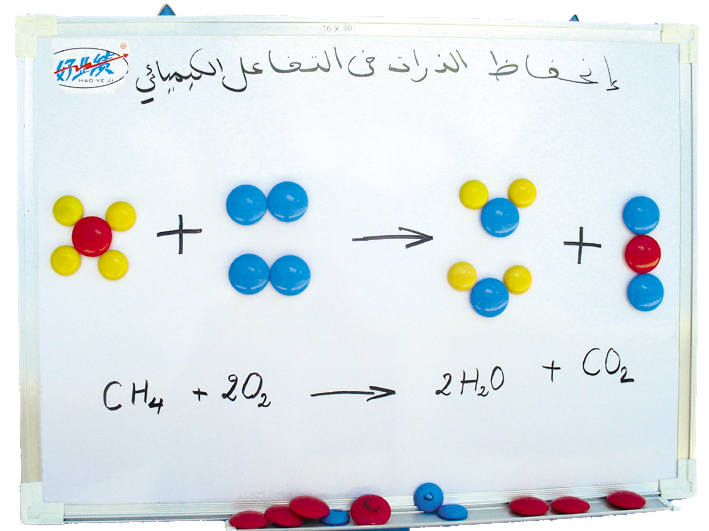 70 X 50
好业绩®
HAO YE JI
إنحفاظ الذرات في التفاعل الكيميائي
CH₄ + 2O₂ → 2H₂O + CO₂